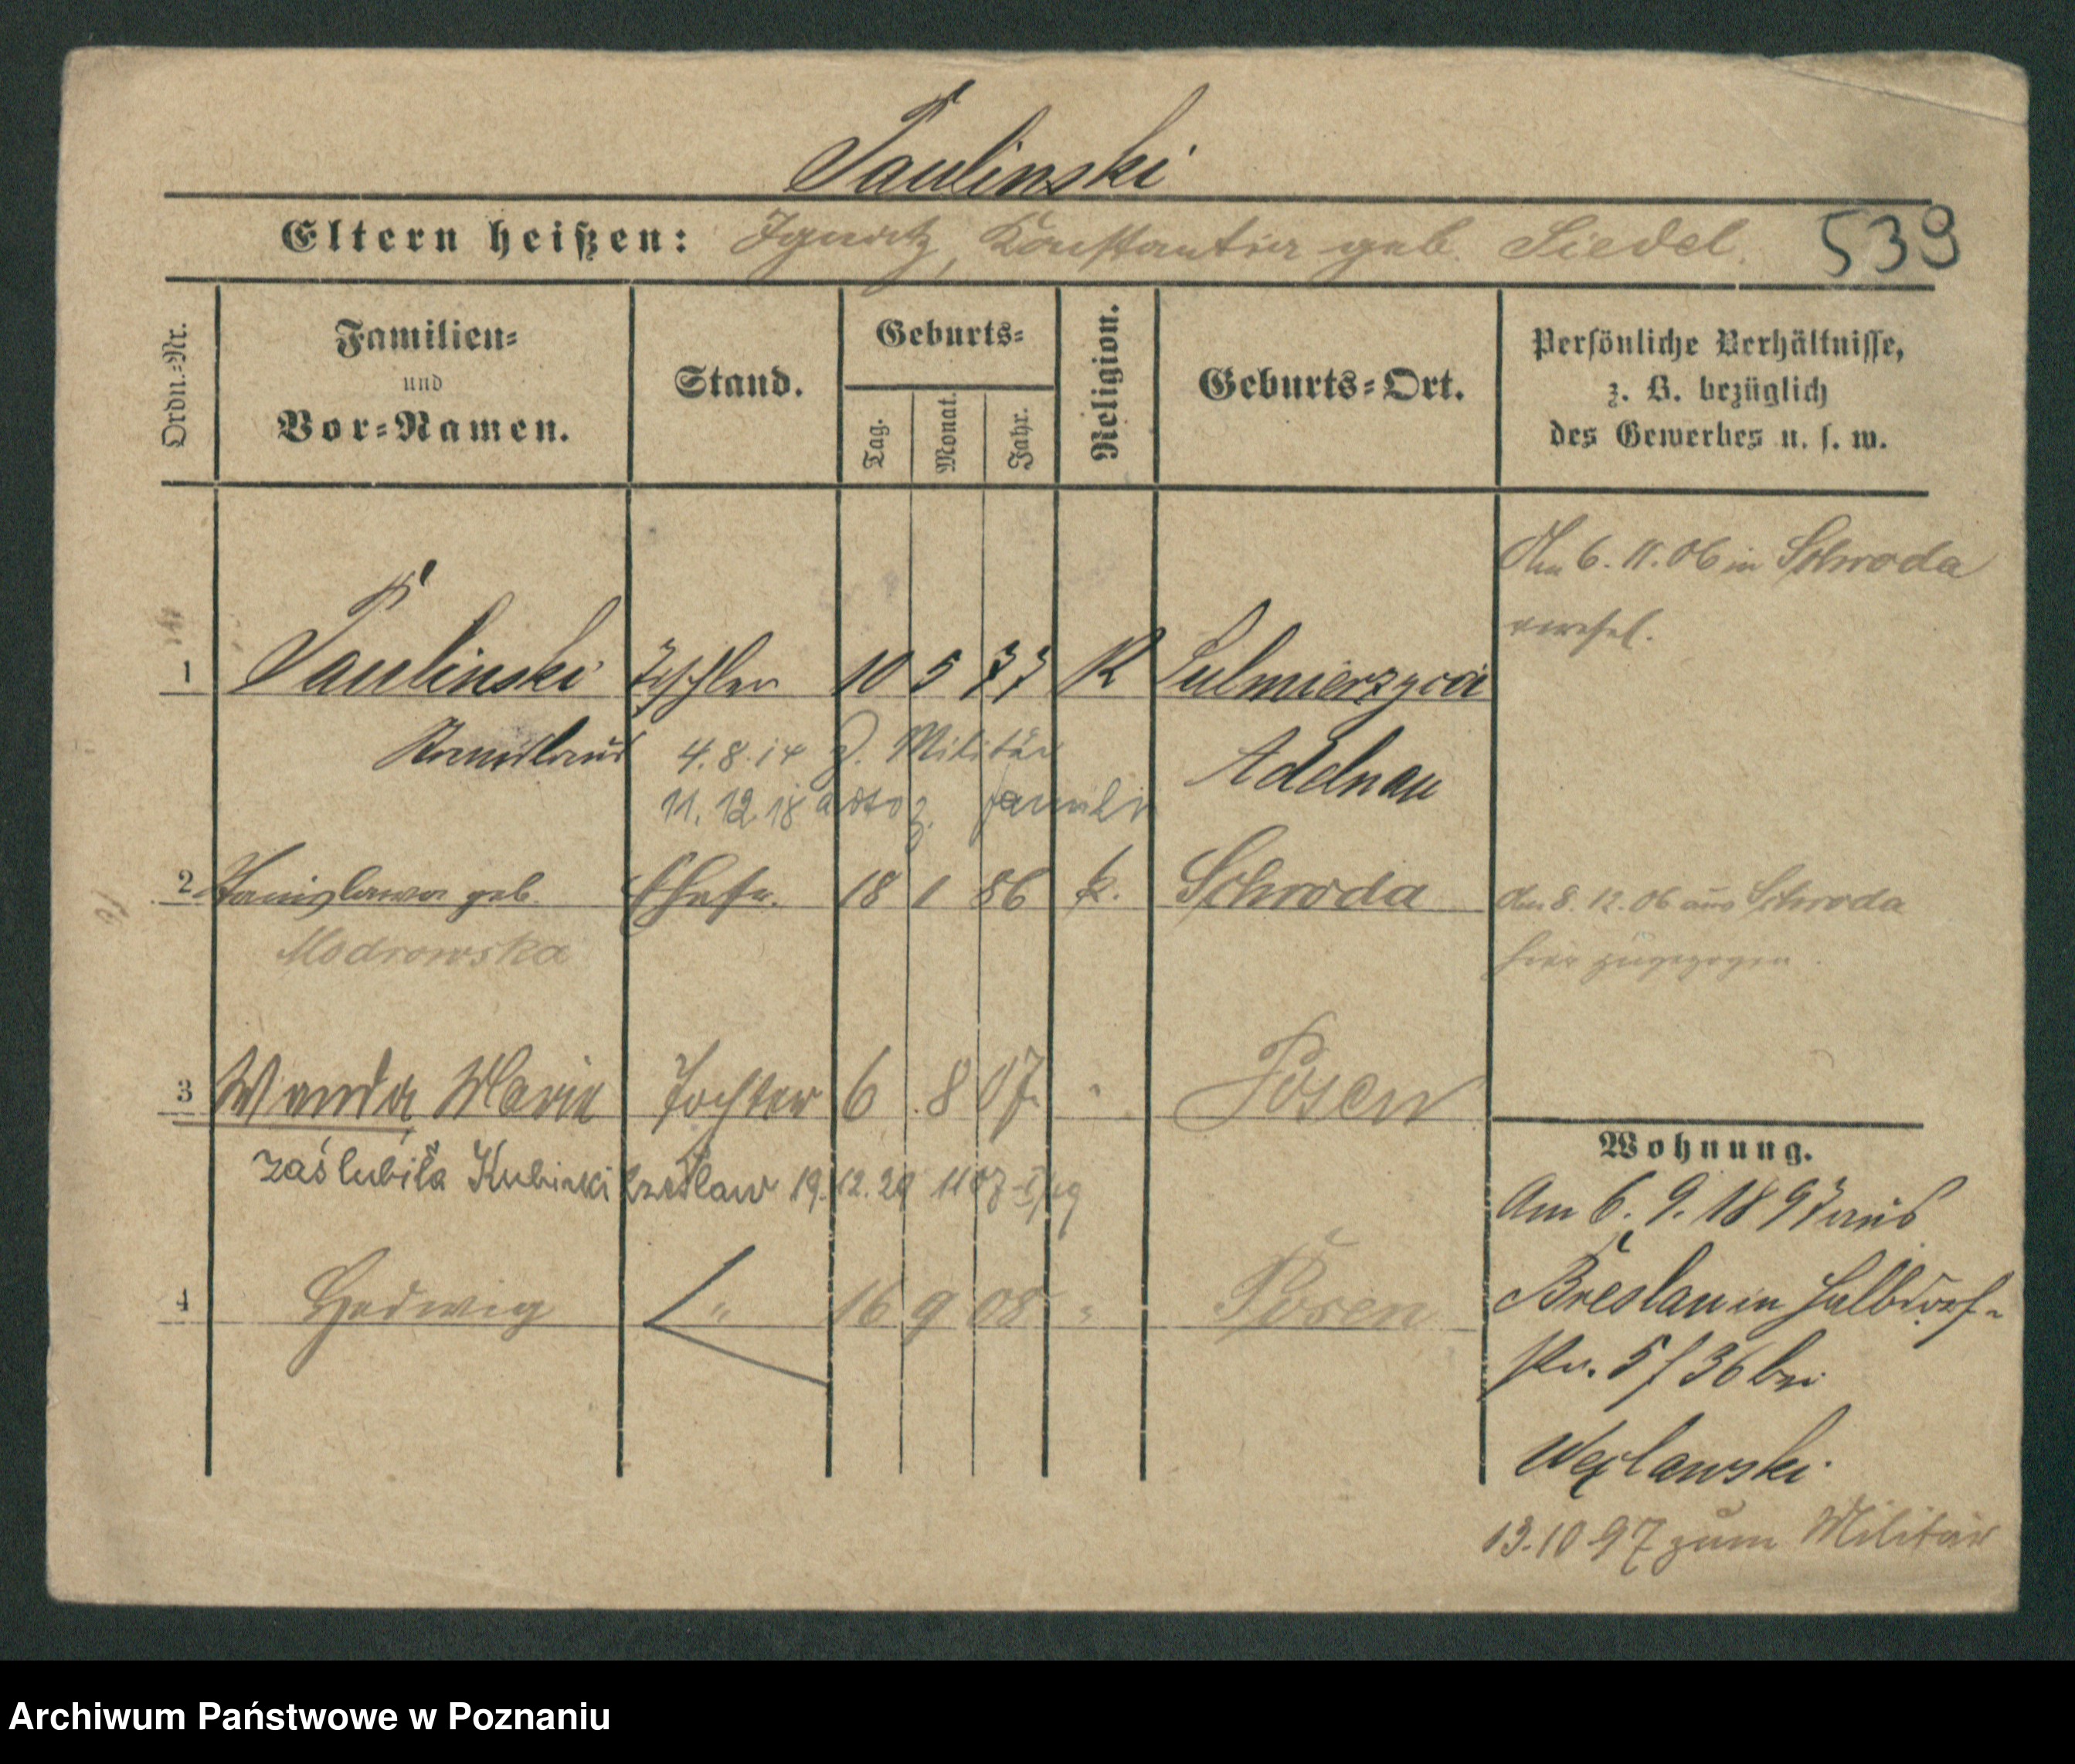 Paulinski
Eltern heißen: Ignatz, Konstantia geb. Siedel.
539
Ordn.-Nr.
Familien-
und
Vor-Namen.
Stand.
Geburts-
Tag. Monat. Jahr.
Religion.
Geburts-Ort.
Persönliche Verhältnisse,
z. B. bezüglich
des Gewerbes u. s. w.
Am 6. 11. 06 in Schroda
verehel.
1 Paulinski Tischler 10 5 77 K Sulmierzyce
Stanislaus 4.8.14 z. Militär Adelnau
11.12.18
2 Stanislawa geb. Ehefr. 18 1 86 k. Schroda
Modrowska
Am 8. 12. 06 aus Schroda
hier zugezogen.
3 Wanda Marie Tochter 6 8 07 " Posen
zaślubiła Kubicki Czesław 19.12.29
4 Hedwig " 16 9 08 " Posen
Wohnung.
Am 6. 9. 1897 aus
Breslau in Halbdorf-
str. 5/36 bei
Węclawski
13.10.97 zum Militär
Archiwum Państwowe w Poznaniu